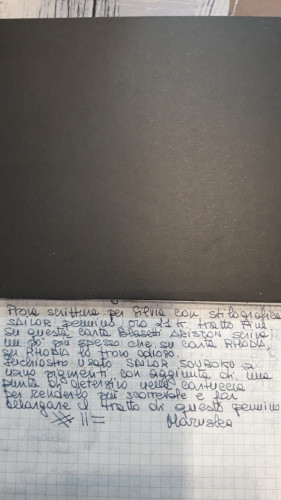 Prova scrittura per Silvia con stilografica
SAILOR pennino oro 21 K. tratto fine
su questa carta Blasetti ARISTON scrive
un po' più spesso che su carta RHODIA,
su RHODIA lo trovo odioso.
Inchiostro usato SAILOR SOUBOKU a
nano pigmenti con aggiunta di una
punta di detersivo nella cartuccia
per renderlo più scorrevole e far
allargare il tratto di questo pennino